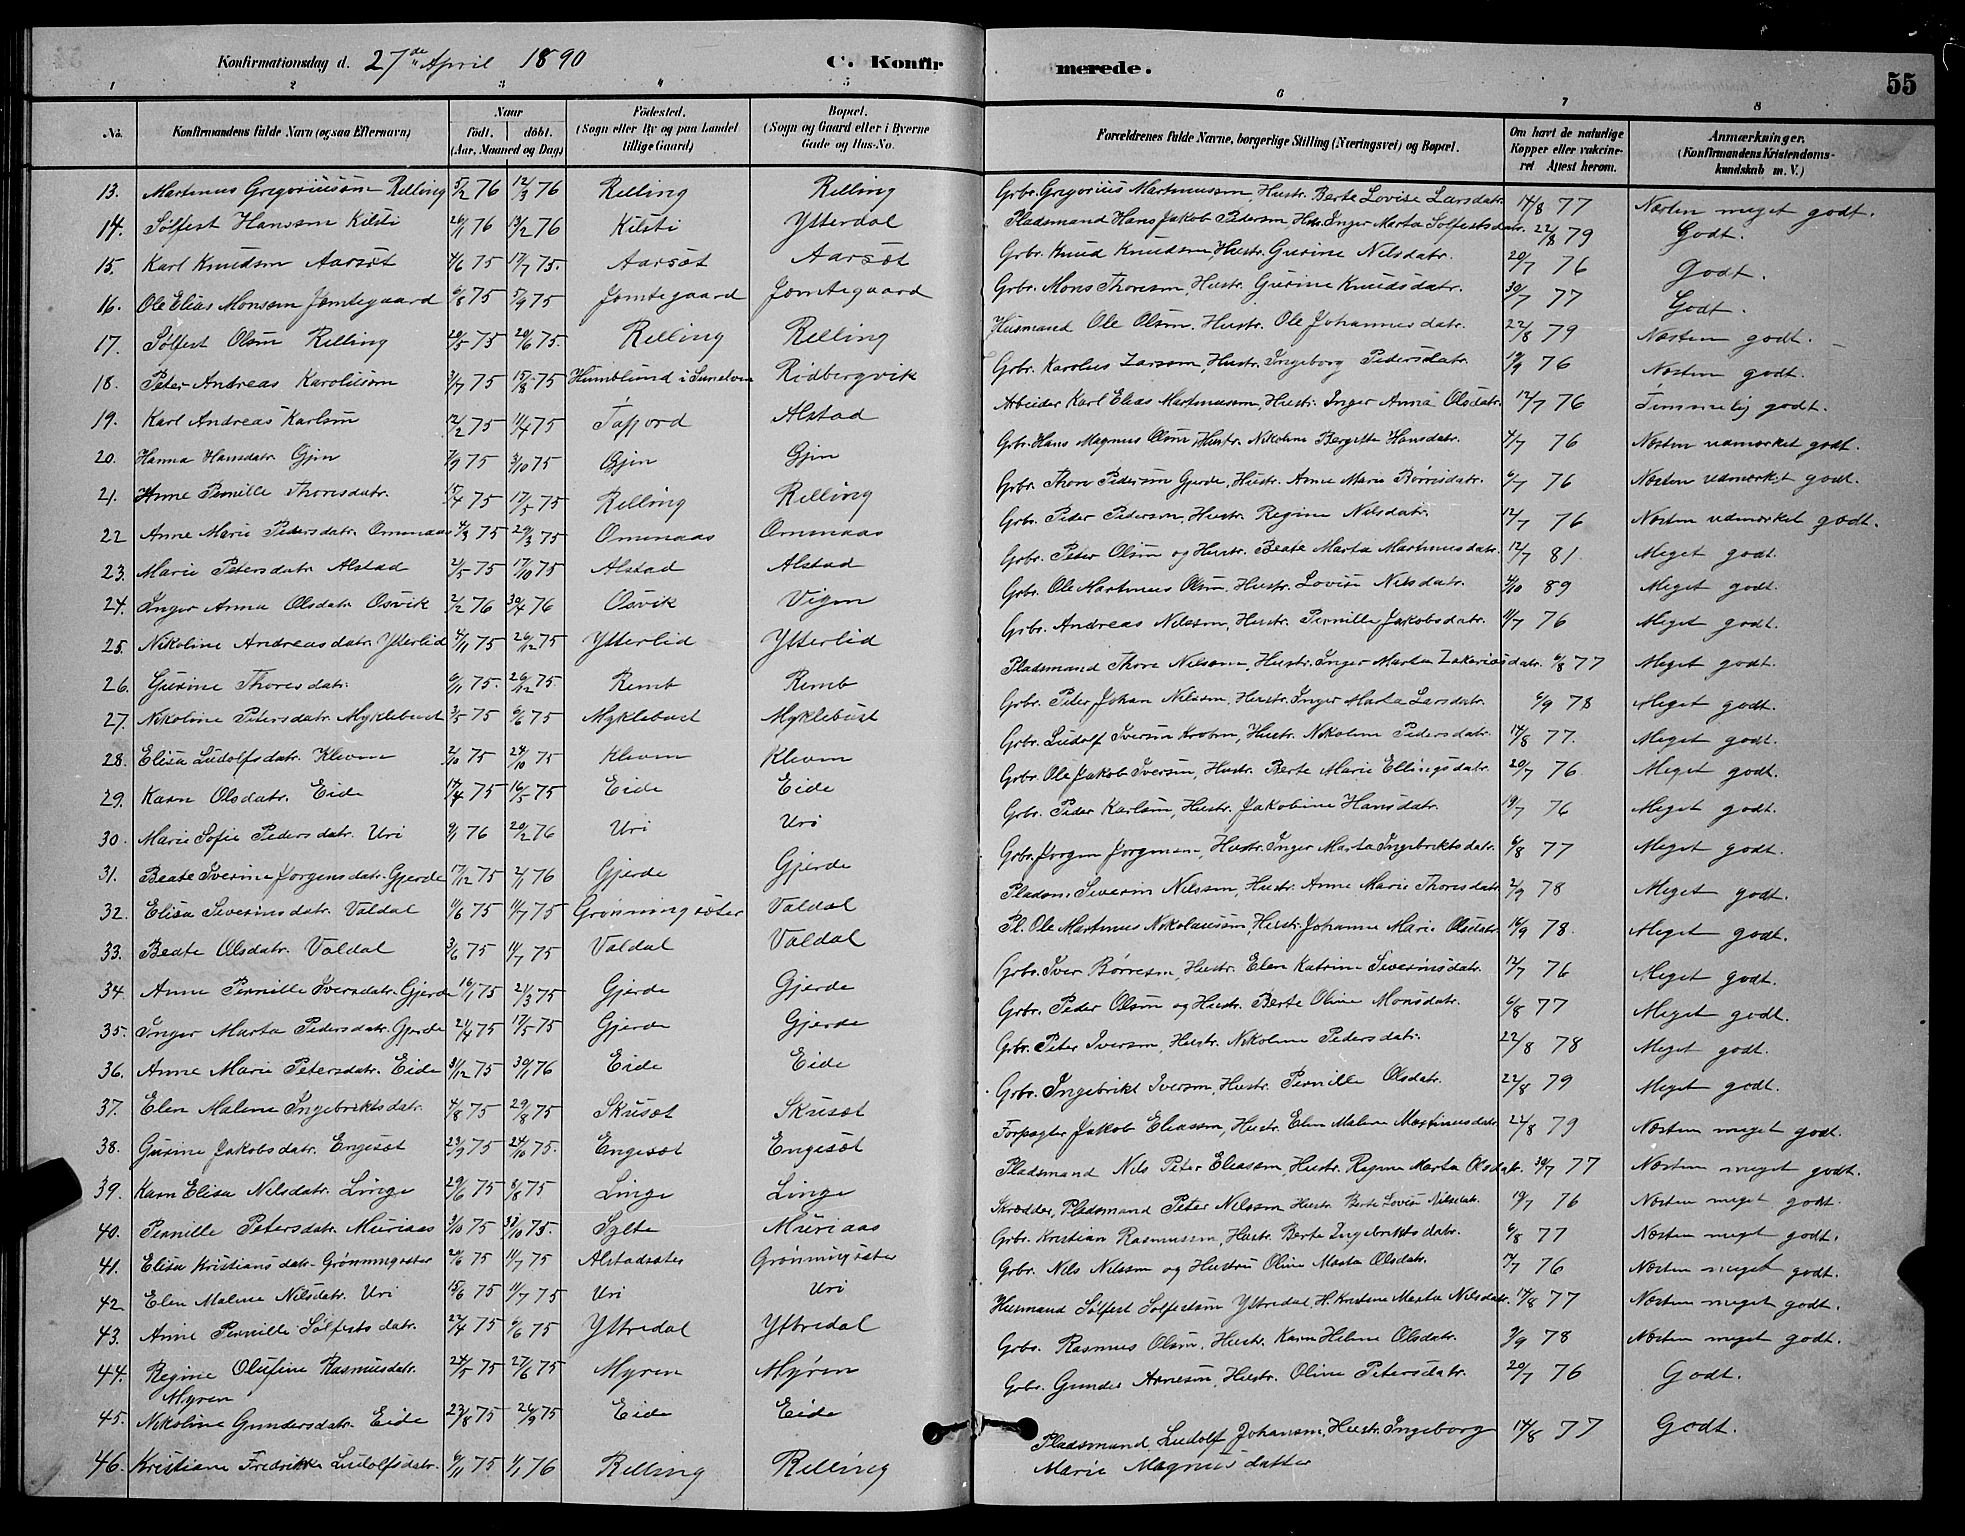 Konfirmationsdag d. 27de April 1890 C. Konfirmerede. 55
1 2 3 4 5 6 7 8
No. Konfirmandens fulde Navn (ogsaa Efternavn) Naar født. døbt. (Aar, Maaned og Dag) Fødested. (Sogn eller By og paa Landet tillige Gaard) Bopæl. (Sogn og Gaard eller i Byerne Gade og Hus-No. Forældrenes fulde Navne, borgerlige Stilling (Næringsvei) og Bopæl. Om havt de naturlige Kopper eller vakcineret Attest herom. Anmærkninger. (Konfirmandens Kristendomskundskab m. V.)
13. Martinus Gregoriusøn Relling 5/2 76 12/3 76 Relling Relling Grbr. Gregorius Martinussøn, Hustr. Berte Lovise Larsdatr. 14/8 77 Næsten meget godt.
14. Sølfest Hanssøn Kilsti 26/1 76 13/2 76 Kilsti Ytterdal Pladsmand Hans Jakob Pedersøn, Hstr. Inger Marta Solfestsdatr. 22/8 79 Godt.
15. Karl Knudsøn Aarsæt 4/6 75 17/7 75. Aarsæt Aarsæt Grbr. Knud Knudsøn, Hustr. Gurine Nilsdatr. 20/7 76 Godt.
16. Ole Elias Monssøn Jamtegaard 6/8 75 5/9 75 Jamtegaard Jamtegaard Grbr. Mons Thoresøn, Hustr. Gurine Knudsdatr. 30/7 77 Godt.
17. Sølfest Olsøn Relling 20/5 75 20/6 75. Relling Relling Husmand Ole Olsøn, Hustr. Ole Johannesdatr. 22/8 79 Næsten godt.
18. Peter Andreas Karoliusøn 3/7 75 15/8 75 Humblund i Sunelven Rødbergvik Grbr. Karolus Larsøn, Hustr. Ingeborg Pedersdatr. 19/9 76 Næsten godt.
19. Karl Andreas Karlsøn 12/2 75 11/4 75 Tafjord Alstad Arbeider Karl Elias Martinussøn, Hustr. Inger Anna Olsdatr. 12/7 76 Temmelig godt.
20. Hanna Hansdatr. Gjøn 7/9 75 3/10 75 Gjøn Gjøn Grbr. Hans Magnus Olsøn, Hustr. Nikoline Bergitte Hansdatr. 4/7 76 Næsten udmærket godt.
21. Anne Pernille Thoresdatr. 15/4 75 17/5 75 Relling Relling Grbr. Thore Pedersøn Gjerde, Hustr. Anne Marie Børresdatr. 6/7 76 Næsten udmærket godt.
22 Anne Marie Pedersdatr. Omenaas 4/3 75 29/3 75 Omenaas Omenaas Grbr. Peder Pedersøn, Hustr. Regine Nilsdatr. 12/7 76 Næsten udmærket godt.
23. Marie Petersdatr. Alstad 21/5 75 17/10 75 Alstad Alstad Grbr. Peter Olsøn og Hustr. Beate Marta Martinusdatr. 12/7 81. Meget godt.
24. Inger Anna Olsdatr. Osvik 2/2 76 30/4 76 Osvik Vigen Grbr. Ole Martinus Olsøn, Hustr. Lovise Nilsdatr. 4/10 89 Meget godt.
25. Nikoline Andreasdatr. Ytterlid 4/11 75 26/12 75 Ytterlid Ytterlid Grbr. Andreas Nilssøn, Hustr. Pernille Jakobsdatr. 11/7 76 Meget godt.
26. Gurine Thoresdatr. 6/11 75. 26/12 75. Remb Remb Pladsmand Thore Nilsøn, Hustr. Inger Marta Zakariasdatr. 6/8 77 Meget godt.
27. Nikoline Petersdatr. Myklebust 3/5 75 6/6 75 Myklebust Myklebust Grbr. Peter Johan Nilssøn, Hustr. Inger Marta Larsdatr. 6/9 78 Meget godt.
28. Elisa Ludolfsdatr. Kleven 2/10 75 24/10 75 Kleven Kleven Grbr. Ludolf Iversøn, Hustr. Nikoline Pedersdatr. 14/8 77. Meget godt.
29. Karn Olsdatr. Eide 14/4 75 16/5 75 Eide Eide Grbr. Ole Jakob Iversøn, Hustr. Berte Marie Ellingsdatr. 20/7 76. Meget godt.
30. Marie Sofie Pedersdatr. Uri 9/1 76 20/2 76 Uri Uri Grbr. Peder Karlsøn, Hustr. Jakobine Hansdatr. 19/7 76 Meget godt.
31. Beate Iverine Jørgensdatr. Gjerde 17/12 75 2/1 76 Gjerde Gjerde Grbr. Jørgen Jørgensøn, Hustr. Inger Marta Ingebriktsdatr. 6/8 77 Meget godt.
32. Elisa Severinsdatr. Valdal 11/6 75 11/7 75 Grønningsæter Valdal Pladsm. Severin Nilssøn, Hustr. Anne Marie Thoresdatr. 2/9 78 Meget godt.
33. Beate Olsdatr. Valdal 3/6 75 11/7 75 Valdal Valdal Pl. Ole Martinus Nikolaussøn, Hustr. Johanne Marie Olsdatr. 16/9 78. Meget godt.
34. Anne Pernille Iversdatr. Gjerde 16/1 75 21/3 75 Gjerde Gjerde Grbr. Iver Børresøn Hustr. Elen Katrine Severinsdatr. 12/7 76 Meget godt.
35. Inger Marta Pedersdatr. Gjerde 21/4 75 17/5 75 Gjerde Gjerde Grbr. Peder Olsøn og Hustr. Berte Oline Monsdatr. 6/8 77 Meget godt.
36. Anne Marie Petersdatr. Eide 31/12 75 30/1 76 Eide Eide Grbr. Peter Iversøn, Hustr. Nikoline Pedersdatr. 22/8 78 Meget godt.
37. Elen Malene Ingebriktsdatr. 4/8 75 29/8 75 Skusæt Skusæt Grbr. Ingebrikt Iversøn, Hustr. Pernille Olsdatr. 22/8 79 Meget godt.
38. Gurine Jakobsdatr. Engesæt 23/9 75 24/10 75. Engesæt Engesæt Forpagter Jakob Eliassøn, Hustr. Elen Malene Martinusdatr. 22/8 79 Næsten meget godt.
39. Karn Elisa Nilsdatr. Linge 29/6 75 8/8 75 Linge Linge Pladsmand Nils Peter Eliassøn, Hustr. Regine Marta Olsdatr. 30/7 77 Næsten meget godt.
40. Pernille Petersdatr. Muriaas 3/10 75 31/10 75. Sylte Muriaas Skrædder, Pladsmand Peter Nilssøn Hustr. Berte Lovise Nilsdatr. 19/7 76 Næsten meget godt.
41. Elisa Kristiansdatr. Grønningsæter 20/6 75 11/7 75 Alstadsæter Grønningsæter Grbr. Kristian Rasmussøn, Hustr. Berte Ingebriktsdatr. 6/8 77 Næsten meget godt.
42 Elen Malene Nilsdatr. Uri 15/6 75 11/7 75 Uri Uri Grbr. Nils Nilssøn og Hustru Oline Marta Olsdatr. 7/7 76 Næsten meget godt.
43. Anne Pernille Sølfestsdatr. 22/4 75 6/6 75 Yttredal Yttredal Husmand Sølfest Solfestsøn Yttredal, H. Kristine Marta Nilsdatr. 14/8 77 Næsten meget godt.
44. Regine Olufine Rasmusdatr. 24/5 75 27/6 75 Myren Myren Grbr. Rasmus Olsøn, Hustr. Karn Helene Olsdatr. 3/9 78 Næsten meget godt.
Myren
45. Nikoline Gundersdatr. Eide 23/8 75 26/9 75 Eide Eide Grbr. Gunder Arnesøn, Hustr. Oline Petersdatr. 20/7 76 Godt.
46. Kristiane Fredrikke Ludolfsdatr. 6/11 75 1/1 76 Relling Relling Pladsmand Ludolf Johansøn, Hustr. Ingeborg 14/8 77 Godt.
Marie Magnusdatter